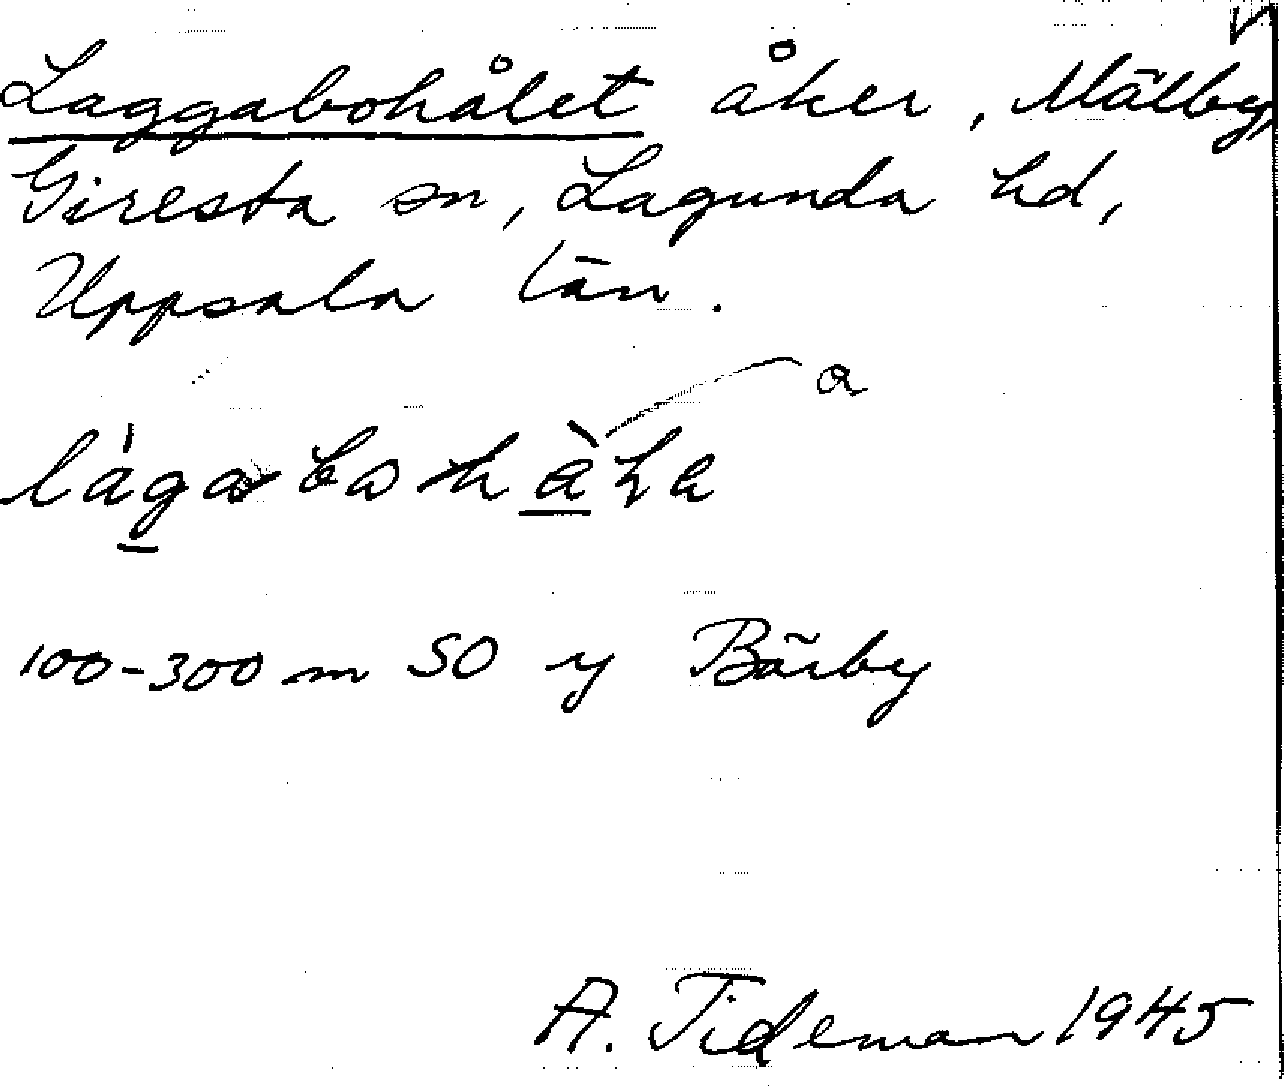 Laggabohålet åker, Mälby,
Giresta sn, Lagunda hd,
Uppsala län.
a
100-300 m SO y Bärby
A. Tideman 1945